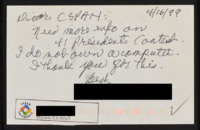 Dear CSPAN: 4/16/99
Need more info on
41 Presidents Contest.
I do not own a computer.
I thank you for this.